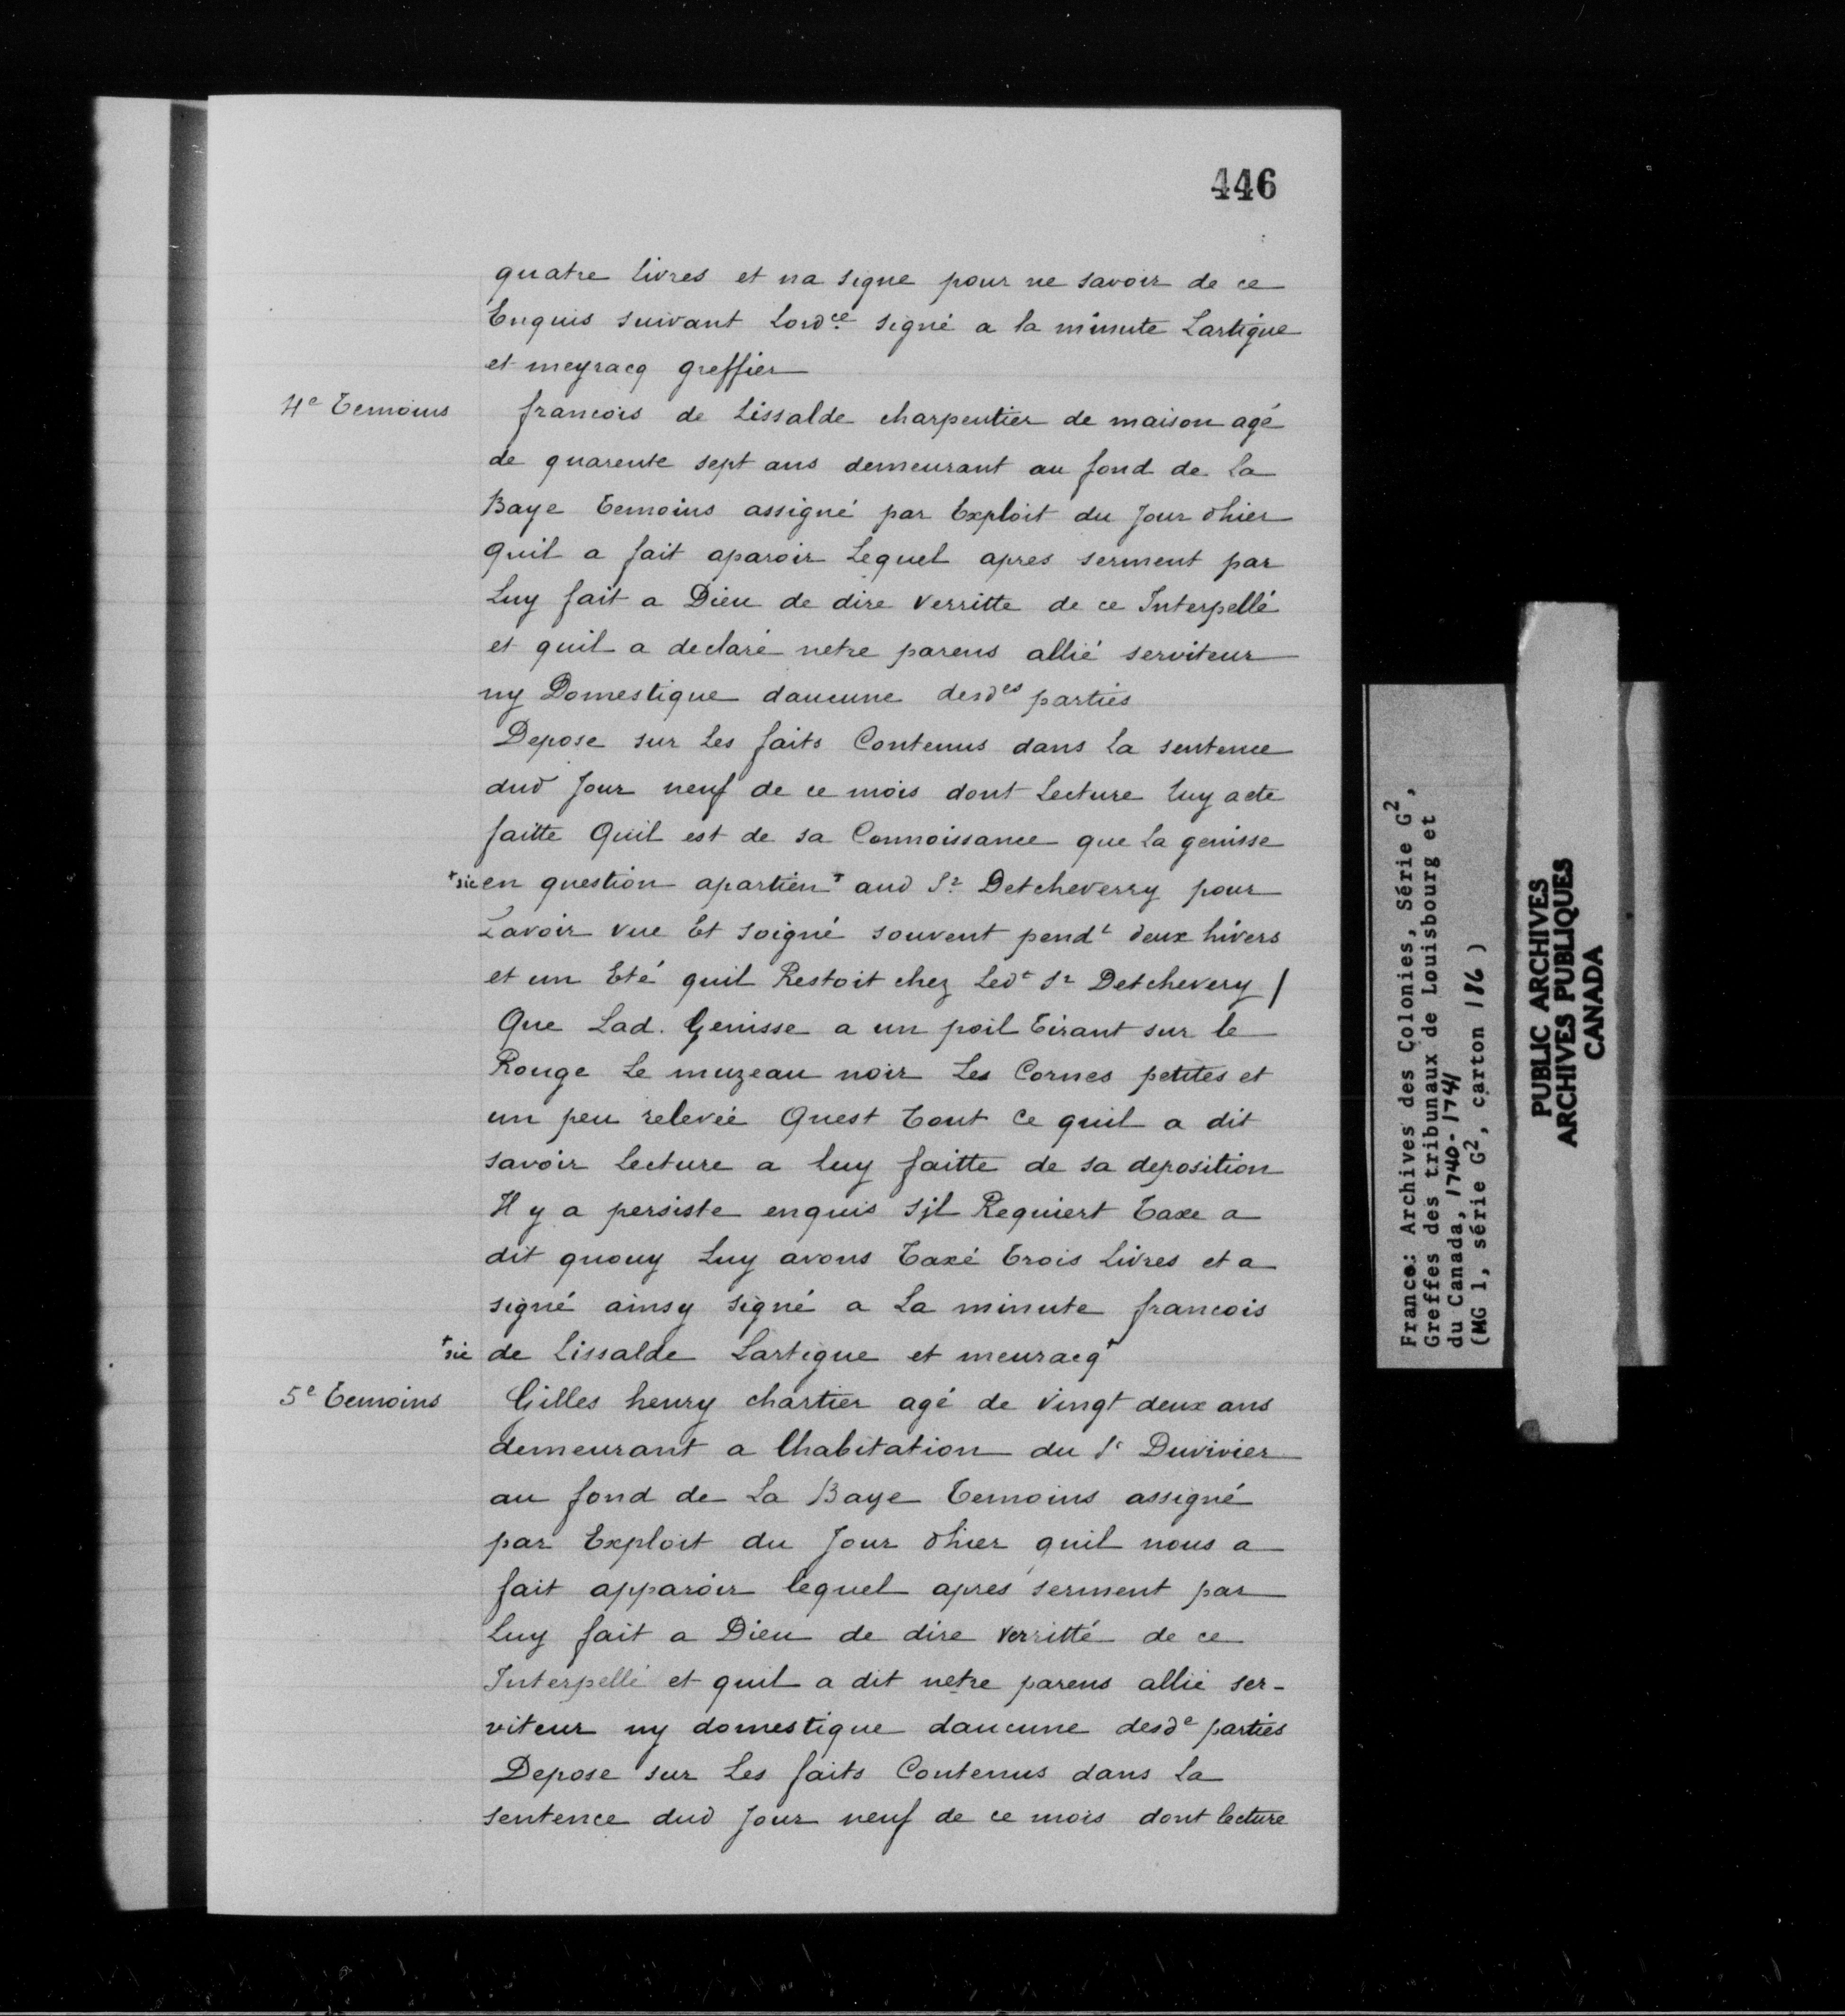 446
quatre livres et na signe pour ne savoir de ce
Enquis suivant Lordce signé a la minute Lartigue
et meyracq greffier
4e Temoins
francois de Lissalde charpentier de maison agé
de quarente sept ans demeurant au fond de La
Baye Temoins assigné par Exploit du Jour dhier
quil a fait aparoir Lequel apres serment par
Luy fait a Dieu de dire Verritte de ce Interpellé
et quil a declaré netre parens allié serviteur
ny Domestique daucune desdes parties
Depose sur Les faits Contenus dans La sentence
dud Jour neuf de ce mois dont Lecture Luy a ete
faitte Quil est de sa Connoissance que La genisse
+sic en question apartien+ aud Sr Detcheverry pour
Lavoir vue Et soigné souvent pendt deux hivers
et un Eté quil Restoit chez Ledt Sr Detchevery /
Que Lad. Genisse a un poil Tirant sur le
Rouge Le muzeau noir Les Cornes petites et
un peu relevée Quest Tout Ce quil a dit
savoir Lecture a luy faitte de sa deposition
Il y a persiste enquis sjl Requiert Taxe a
dit quouy Luy avons Taxé Trois Livres et a
signé ainsy signé a La minute francois
+sic de Lissalde Lartigue et meuracq+
5e Temoins
Gilles henry chartier agé de vingt deux ans
demeurant a lhabitation du Sr Duvivier
au fond de La Baye Temoins assigné
par Exploit du Jour dhier quil nous a
fait apparoir lequel apres serment par
Luy fait a Dieu de dire verritté de ce
Interpellé et quil a dit netre parens allié ser-
viteur ny domestique daucune desde parties
Depose sur Les faits Contenus dans La
sentence dud Jour neuf de ce mois dont lecture
France: Archives des Colonies, Série G2,
Greffes des tribunaux de Louisbourg et
du Canada, 1740-1741
(MG 1, série G2, carton 186)
PUBLIC ARCHIVES
ARCHIVES PUBLIQUES
CANADA